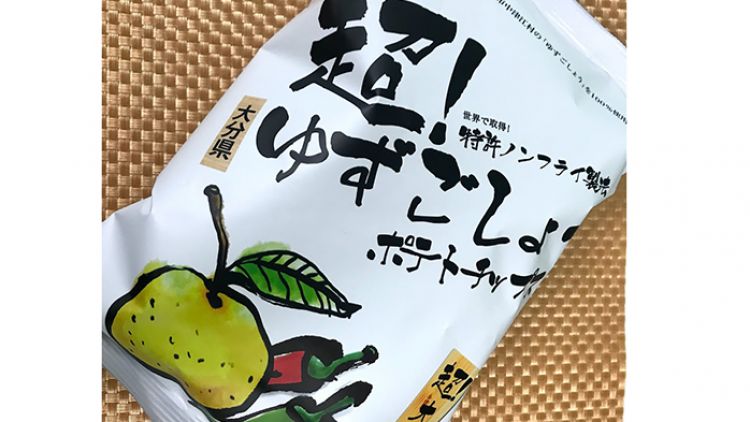 中津江村の「ゆずごしょう」を100%使用
超!
世界で取得!
特許ノンフライ製法
大分県
ゆずごしょう
ポテトチップス
超!
大